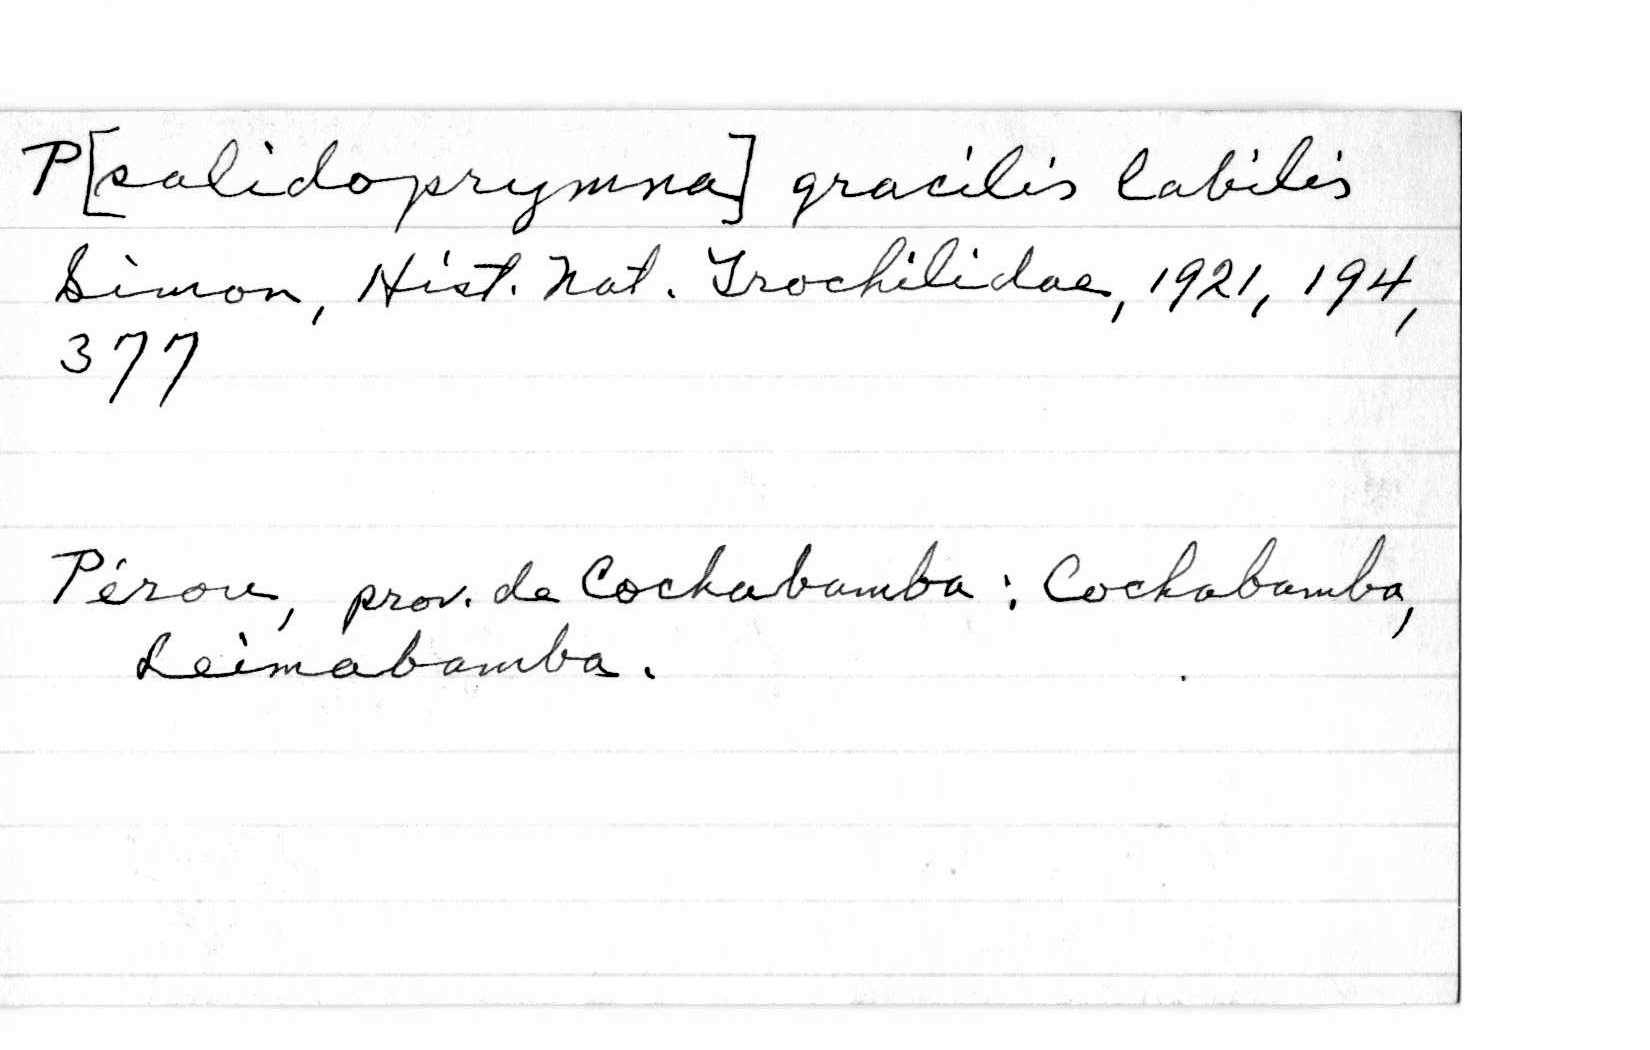 P[salidoprymna] gracilis labilis
Simon, Hist. Nat. Trochilidae, 1921, 194,
377
Pérou, prov. de Cochabamba : Cochabamba,
Leimabamba.